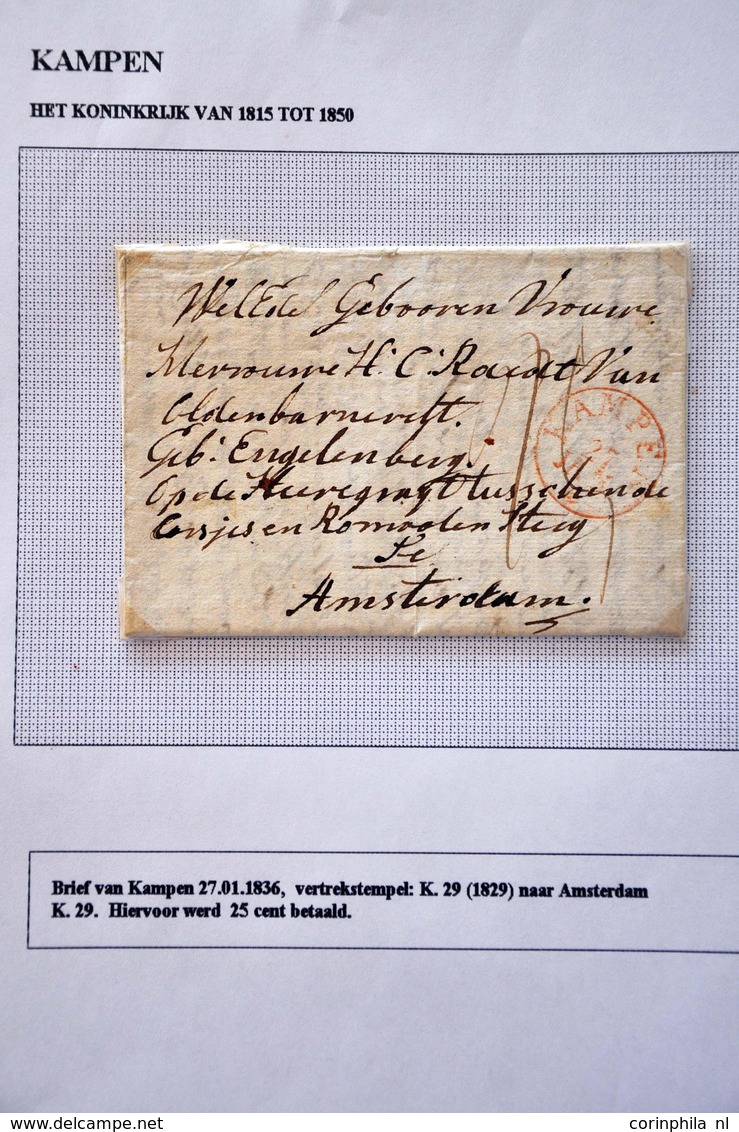 KAMPEN
HET KONINKRIJK VAN 1815 TOT 1850
WelEdel Gebooren Vrouwe
Mevrouwe H: C: Raedt Van
Oldenbarnevelt.
Geb: Engelenberg.
Op de Heeregragt tusschen de
en Romoolen Steeg
Te
Amsterdam.
KAMPEN
27
Brief van Kampen 27.01.1836, vertrekstempel: K. 29 (1829) naar Amsterdam
K. 29. Hiervoor werd 25 cent betaald.
www.delcampe.net
corinphila nl